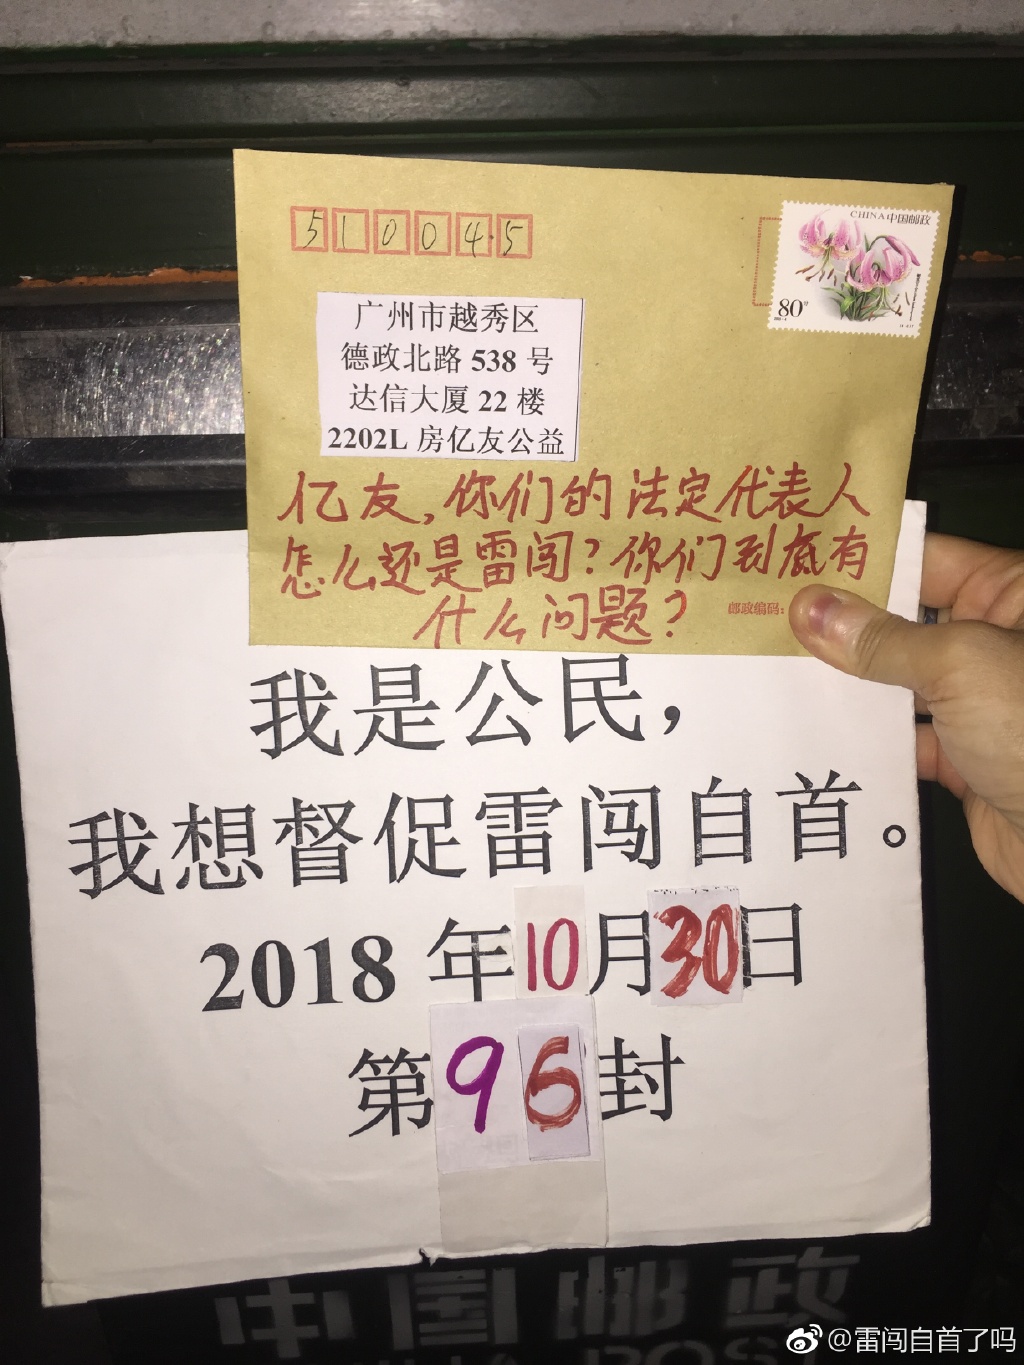 510045
CHINA中国邮政
80分
广州市越秀区
德政北路 538 号
达信大厦 22 楼
2202L 房亿友公益
亿友,你们的法定代表人
怎么还是雷闯?你们到底有
什么问题?
邮政编码:
我是公民,
我想督促雷闯自首。
2018 年10月30日
第96封
中国邮政
@雷闯自首了吗